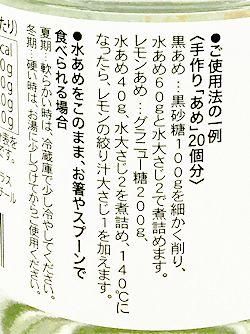 ●ご使用法の一例
〈手作り「あめ」20個分〉
黒あめ…黒砂糖100gを細かく削り、
水あめ60gと水大さじ2で煮詰めます。
レモンあめ…グラニュー糖200g、
水あめ40g、水大さじ2を煮詰め、140℃に
なったら、レモンの絞り汁大さじ1を加えます。
●水あめをこのまま、お箸やスプーンで
食べられる場合
夏期…軟らかい時は、冷蔵庫で少し冷やしてください。
冬期…硬い時は、お湯に少しつけてからご使用ください。
たり)
cal
0g
0g